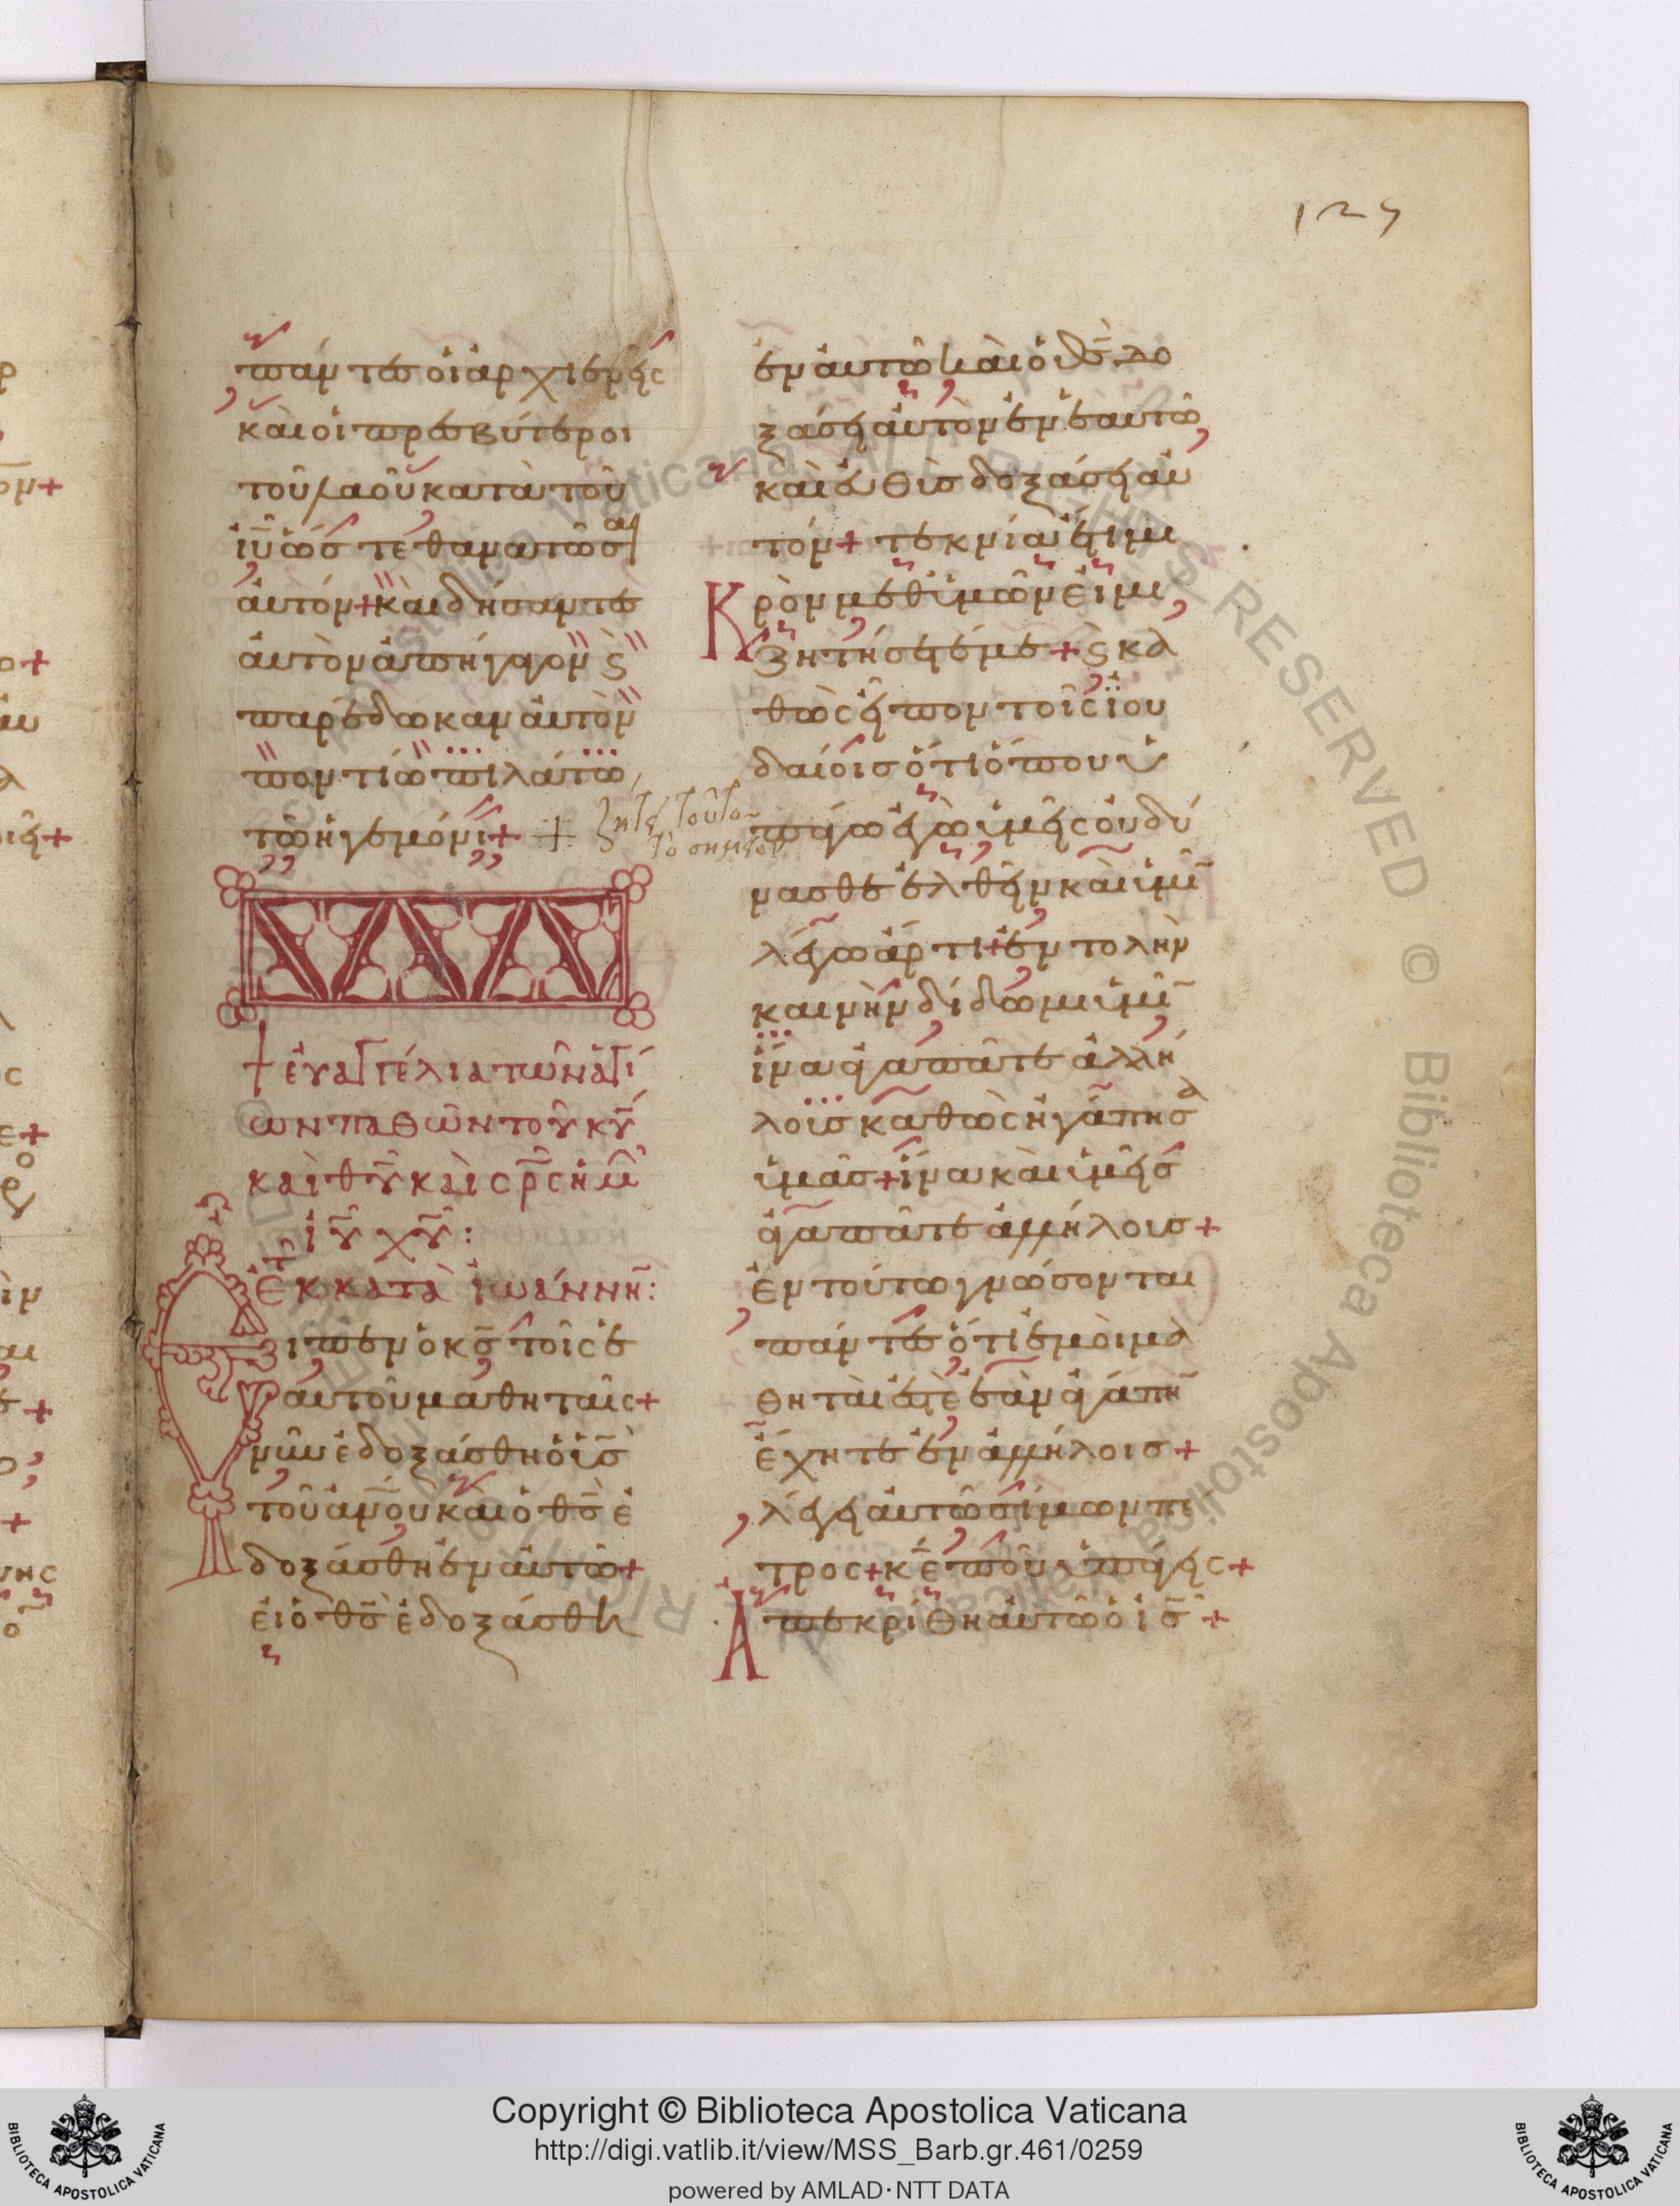 129
πάντες οἱ ἀρχιερεῖς
καὶ οἱ πρεσβύτεροι
τοῦ λαοῦ κατὰ τοῦ
ἰῡ ὥστε θανατῶσαι
αὐτόν + καὶ δήσαντες
αὐτὸν ἀπήγαγον ϛ
παρέδωκαν αὐτὸν
ποντίω πιλάτω
τῶ ἡγεμόνι +
+ ζήτει τοῦτο
τὸ σημεῖον
+ εὐαγγέλια τῶν ἁγί
ων παθῶν τοῦ κῡ
καὶ θῡ καὶ σρ̅ς ἡμῶ
ἰῡ χῡ :
ἐκ κατὰ ἰωάννη :
Εἶπεν ὁ κς̄ τοῖς ἑ
αυτοῦ μαθηταῖς +
νῦν ἐδοξάσθη ὁ ις̄
τοῦ ἀν̄ου καὶ ὁ θς̄ ἐ
δοξάσθη ἐν αὐτῶ +
εἰ ὁ θς̄ ἐδοξάσθη
ἐν αὐτῶ καὶ ὁ θς̄ δο
ξάσει αὐτὸν ἐν ἑαυτῶ
καὶ εὐθὺς δοξάσει αὐ
τόν + τεκνία ἔτι μι
Κρὸν μεθ ὑμῶν εἰμι
ζητήσετέ με + ϛ κα
θὼς εἶπον τοῖς ἰου
δαίοις ὅτι ὅπου ὑ
πάγω ἐγὼ ὑμεῖς οὐ δύ
νασθε ἐλθεῖν καὶ ὑμῖ
λέγω ἄρτι + ἐντολὴν
καινὴν δίδωμι ὑμῖ
ἵνα ἀγαπᾶτε ἀλλή
λοις καθὼς ἠγάπησα
ὑμᾶς + ἵνα καὶ ὑμεῖς
ἀγαπᾶτε ἀλλήλοις +
Ἐν τούτω γνώσονται
πάντες ὅτι ἐμοὶ μα
θηταί ἐστε ἐὰν ἀγάπη
ἔχητε ἐν ἀλλήλοις +
λέγει αὐτῶ σίμων πέ
τρος + κε̄ ποῦ ὑπάγεις +
Ἀπεκρίθη αὐτῶ ὁ ις̄ +
Copyright © Biblioteca Apostolica Vaticana
http://digi.vatlib.it/view/MSS_Barb.gr.461/0259
powered by AMLAD·NTT DATA
BIBLIOTECA APOSTOLICA VATICANA
BIBLIOTECA APOSTOLICA VATICANA